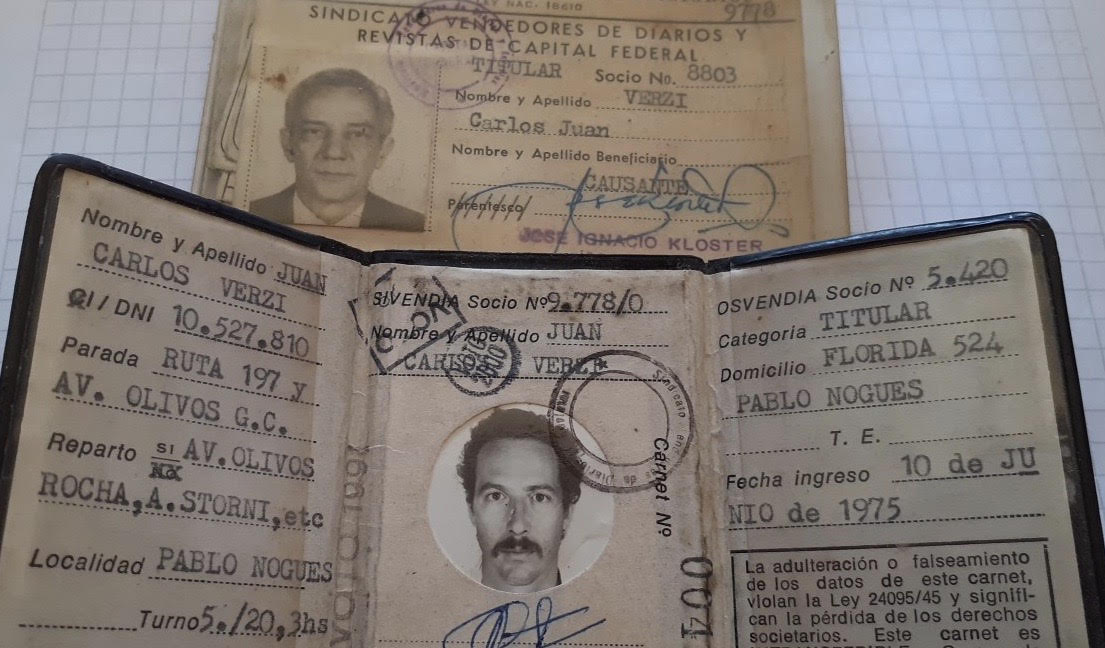 LEY NAC. 18610
9778
SINDICATO VENDEDORES DE DIARIOS Y
REVISTAS DE CAPITAL FEDERAL
TITULAR Socio No. 8803
Nombre y Apellido VERZI
Carlos Juan
Nombre y Apellido Beneficiario
CAUSANTE
Parentesco
JOSE IGNACIO KLOSTER
Nombre y Apellido JUAN
CARLOS VERZI
CI / DNI 10.527.810
Parada RUTA 197 y
AV. OLIVOS G.C.
Reparto SI AV.OLIVOS
ROCHA,A.STORNI,etc
Localidad PABLO NOGUES
Turno 5./20,3hs
SIVENDIA Socio Nº 9.778/0
Nombre y Apellido JUAN
CARLOS VERZI
Sindicato
Carnet Nº
001
OSVENDIA Socio Nº 5.420
Categoria TITULAR
Domicilio FLORIDA 524
PABLO NOGUES
T. E.
Fecha ingreso 10 de JU
NIO de 1975
La adulteración o falseamiento
de los datos de este carnet,
violan la Ley 24095/45 y signifi-
can la pérdida de los derechos
societarios. Este carnet es